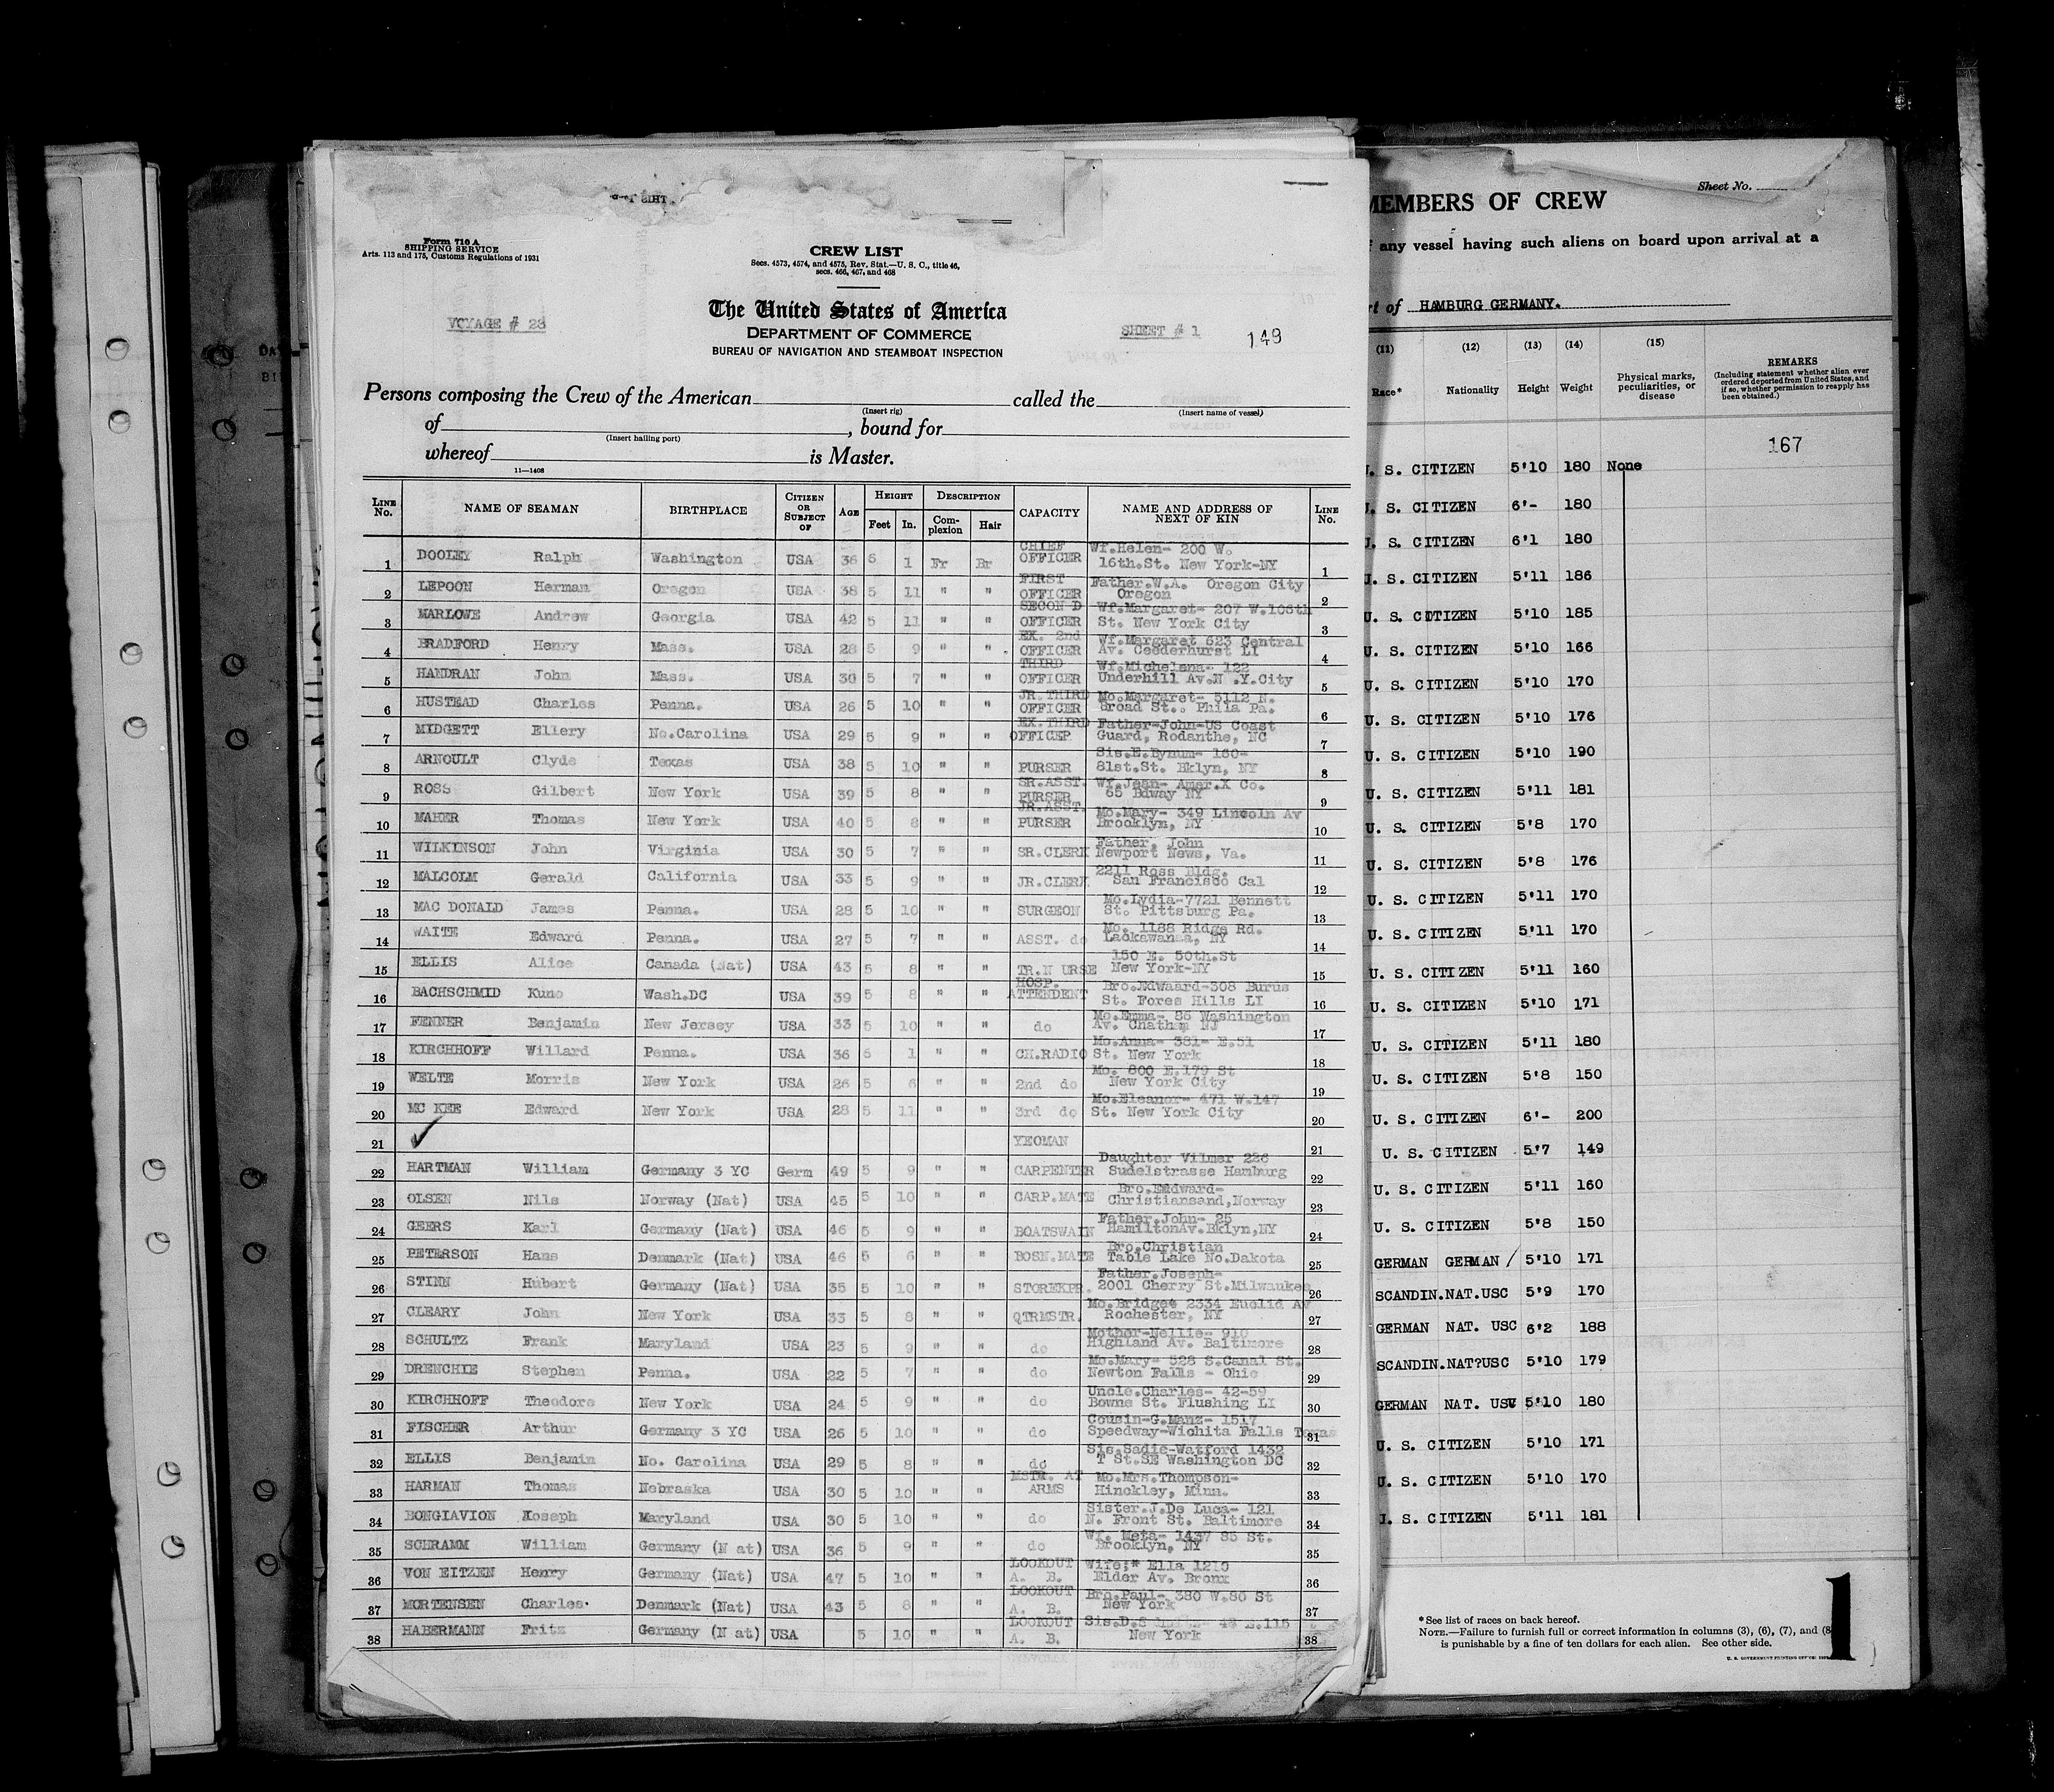 Form 716 A
SHIPPING SERVICE
Arts. 113 and 175, Customs Regulations of 1931
CREW LIST
Secs. 4573, 4574, and 4575, Rev. Stat.—U. S. C., title 46,
secs. 466, 467, and 468
The United States of America
DEPARTMENT OF COMMERCE
BUREAU OF NAVIGATION AND STEAMBOAT INSPECTION
VOYAGE # 23
SHEET # 1
149
Persons composing the Crew of the American called the
(Insert rig) (Insert name of vessel)
of , bound for
(Insert hailing port)
whereof is Master.
11—1408
LINE No. NAME OF SEAMAN BIRTHPLACE CITIZEN OR SUBJECT OF AGE HEIGHT Feet In. DESCRIPTION Complexion Hair CAPACITY NAME AND ADDRESS OF NEXT OF KIN LINE No.
1 DOOLEY Ralph Washington USA 36 6 1 Fr Br CHIEF OFFICER Wf.Helen- 200 W. 16th.St. New York-NY 1
2 LEPOON Herman Oregon USA 38 5 11 " " FIRST OFFICER Father.W.A. Oregon City Oregon 2
3 MARLOWE Andrew Georgia USA 42 5 11 " " SECON D OFFICER Wf.Margaret- 207 W.106th St. New York City 3
4 BRADFORD Henry Mass. USA 28 5 9 " " EX. 2nd OFFICER Wf.Margaret 623 Central Av. Cedderhurst LI 4
5 HANDRAN John Mass. USA 30 5 7 " " THIRD OFFICER Wf.Michelena- 122 Underhill Av.N .Y.City 5
6 HUSTEAD Charles Penna. USA 26 5 10 " " JR.THIRD OFFICER Mo.Margaret- 5112 N. Broad St.. Phila Pa. 6
7 MIDGETT Ellery No.Carolina USA 29 5 9 " " EX.THIRD OFFICER Father-John-US Coast Guard, Rodanthe, NC 7
8 ARNOULT Clyde Texas USA 38 5 10 " " PURSER Sis.E.Bynum- 160- 81st.St. Bklyn, NY 8
9 ROSS Gilbert New York USA 39 5 8 " " SR.ASST. PURSER Wf.Jean- Amer.X Co. 65 Bdway NY 9
10 MAHER Thomas New York USA 40 5 8 " " JR.ASST. PURSER Mo.Mary- 349 Lincoln Av Brooklyn, NY 10
11 WILKINSON John Virginia USA 30 5 7 " " SR.CLERK Father, John Newport News, Va. 11
12 MALCOLM Gerald California USA 33 5 9 " " JR.CLERK 2211 Ross Bldg. San Francisco Cal 12
13 MAC DONALD James Penna. USA 28 5 10 " " SURGEON Mo.Lydia-7721 Bennett St. Pittsburg Pa. 13
14 WAITE Edward Penna. USA 27 5 7 " " ASST. do Mo. 1188 Ridge Rd. Lackawanna, NY 14
15 ELLIS Alice Canada (Nat) USA 43 5 8 " " TR.N URSE 150 E. 50th.St New York-NY 15
16 BACHSCHMID Kuno Wash.DC USA 39 5 8 " " HOSP. ATTENDENT Bro.Edwaard-308 Burus St. Fores Hills LI 16
17 FENNER Benjamin New Jersey USA 33 5 10 " " do Mo.Emma- 86 Washington Av. Chatham NJ 17
18 KIRCHHOFF Willard Penna. USA 36 6 1 " " CH.RADIO Mo.Anna- 381- E.51 St. New York 18
19 WELTE Morris New York USA 26 5 6 " " 2nd do Mo. 800 E.179 St New York City 19
20 MC KEE Edward New York USA 28 5 11 " " 3rd do Mo.Eleanor- 471 W.147 St. New York City 20
21 YEOMAN 21
22 HARTMAN William Germany 3 YC Germ 49 5 9 " " CARPENTER Daughter Vilmer 226 Sudelstrasse Hamburg 22
23 OLSEN Nils Norway (Nat) USA 45 5 10 " " CARP.MATE Bro.Eddward- Christiansand,Norway 23
24 GEERS Karl Germany (Nat) USA 46 5 9 " " BOATSWAIN Father.John- 25 HamiltonAv.Bklyn,NY 24
25 PETERSON Hans Denmark (Nat) USA 46 5 6 " " BOSN.MATE Bro.Christian Table Lake No.Dakota 25
26 STINN Hubert Germany (Nat) USA 35 5 10 " " STOREKPR. Father.Joseph- 2001 Cherry St.Milwaukee 26
27 CLEARY John New York USA 33 5 8 " " QTRMSTR. Mo.Bridget 2334 Euclid Av Rochester, NY 27
28 SCHULTZ Frank Maryland USA 23 5 9 " " do Mother-Nellie- 910 Highland Av. Baltimore 28
29 DRENCHIE Stephen Penna. USA 22 5 7 " " do Mo.Mary- 528 S.Canal St. Newton Falls - Ohio 29
30 KIRCHHOFF Theodore New York USA 24 5 9 " " do Uncle.Charles- 42-59 Bowne St. Flushing LI 30
31 FISCHER Arthur Germany 3 YC USA 26 5 10 " " do Cousin-G.Manz- 1517 Speedway-Wichita Falls Texas 31
32 ELLIS Benjamin No. Carolina USA 29 5 8 " " do Sis.Sadie-Watford 1432 T St.SE Washington DC 32
33 HARMAN Thomas Nebraska USA 30 5 10 " " MSTR. AT ARMS Mo.Mrs.Thompson- Hinckley, Minn. 33
34 BONGIAVION Koseph Maryland USA 30 5 10 " " do Sister.J.De Luca- 121 N. Front St. Baltimore 34
35 SCHRAMM William Germany (N at) USA 36 5 9 " " do Wf. Meta- 1437 85 St. Brooklyn, NY 35
36 VON EITZEN Henry Germany (Nat) USA 47 5 10 " " LOOKOUT A. B. Wife;* Ella 1210 Elder Av. Bronx 36
37 MORTENSEN Charles. Denmark (Nat) USA 43 5 8 " " LOOKOUT A. B. Bro.Paul- 380 W.80 St New York 37
38 HABERMANN Fritz Germany (N at) USA 5 10 " " LOOKOUT A. B. Sis.D.S E.115 New York 38
Sheet No.
MEMBERS OF CREW
any vessel having such aliens on board upon arrival at a
of HAMBURG GERMANY.
(11) (12) (13) (14) (15)
Race* Nationality Height Weight Physical marks, peculiarities, or disease REMARKS
(Including statement whether alien ever ordered deported from United States, and if so, whether permission to reapply has been obtained.)
167
U. S. CITIZEN 5'10 180 None
U. S. CITIZEN 6'- 180
U. S. CITIZEN 6'1 180
U. S. CITIZEN 5'11 186
U. S. CITIZEN 5'10 185
U. S. CITIZEN 5'10 166
U. S. CITIZEN 5'10 170
U. S. CITIZEN 5'10 176
U. S. CITIZEN 5'10 190
U. S. CITIZEN 5'11 181
U. S. CITIZEN 5'8 170
U. S. CITIZEN 5'8 176
U. S. CITIZEN 5'11 170
U. S. CITIZEN 5'11 170
U. S. CITIZEN 5'11 160
U. S. CITIZEN 5'10 171
U. S. CITIZEN 5'11 180
U. S. CITIZEN 5'8 150
U. S. CITIZEN 6'- 200
U. S. CITIZEN 5'7 149
U. S. CITIZEN 5'11 160
U. S. CITIZEN 5'8 150
GERMAN GERMAN / 5'10 171
SCANDIN.NAT.USC 5'9 170
GERMAN NAT. USC 6'2 188
SCANDIN.NAT?USC 5'10 179
GERMAN NAT. USC 5'10 180
U. S. CITIZEN 5'10 171
U. S. CITIZEN 5'10 170
U. S. CITIZEN 5'11 181
*See list of races on back hereof.
NOTE.—Failure to furnish full or correct information in columns (3), (6), (7), and (8
is punishable by a fine of ten dollars for each alien. See other side.
U. S. GOVERNMENT PRINTING OFFICE
1